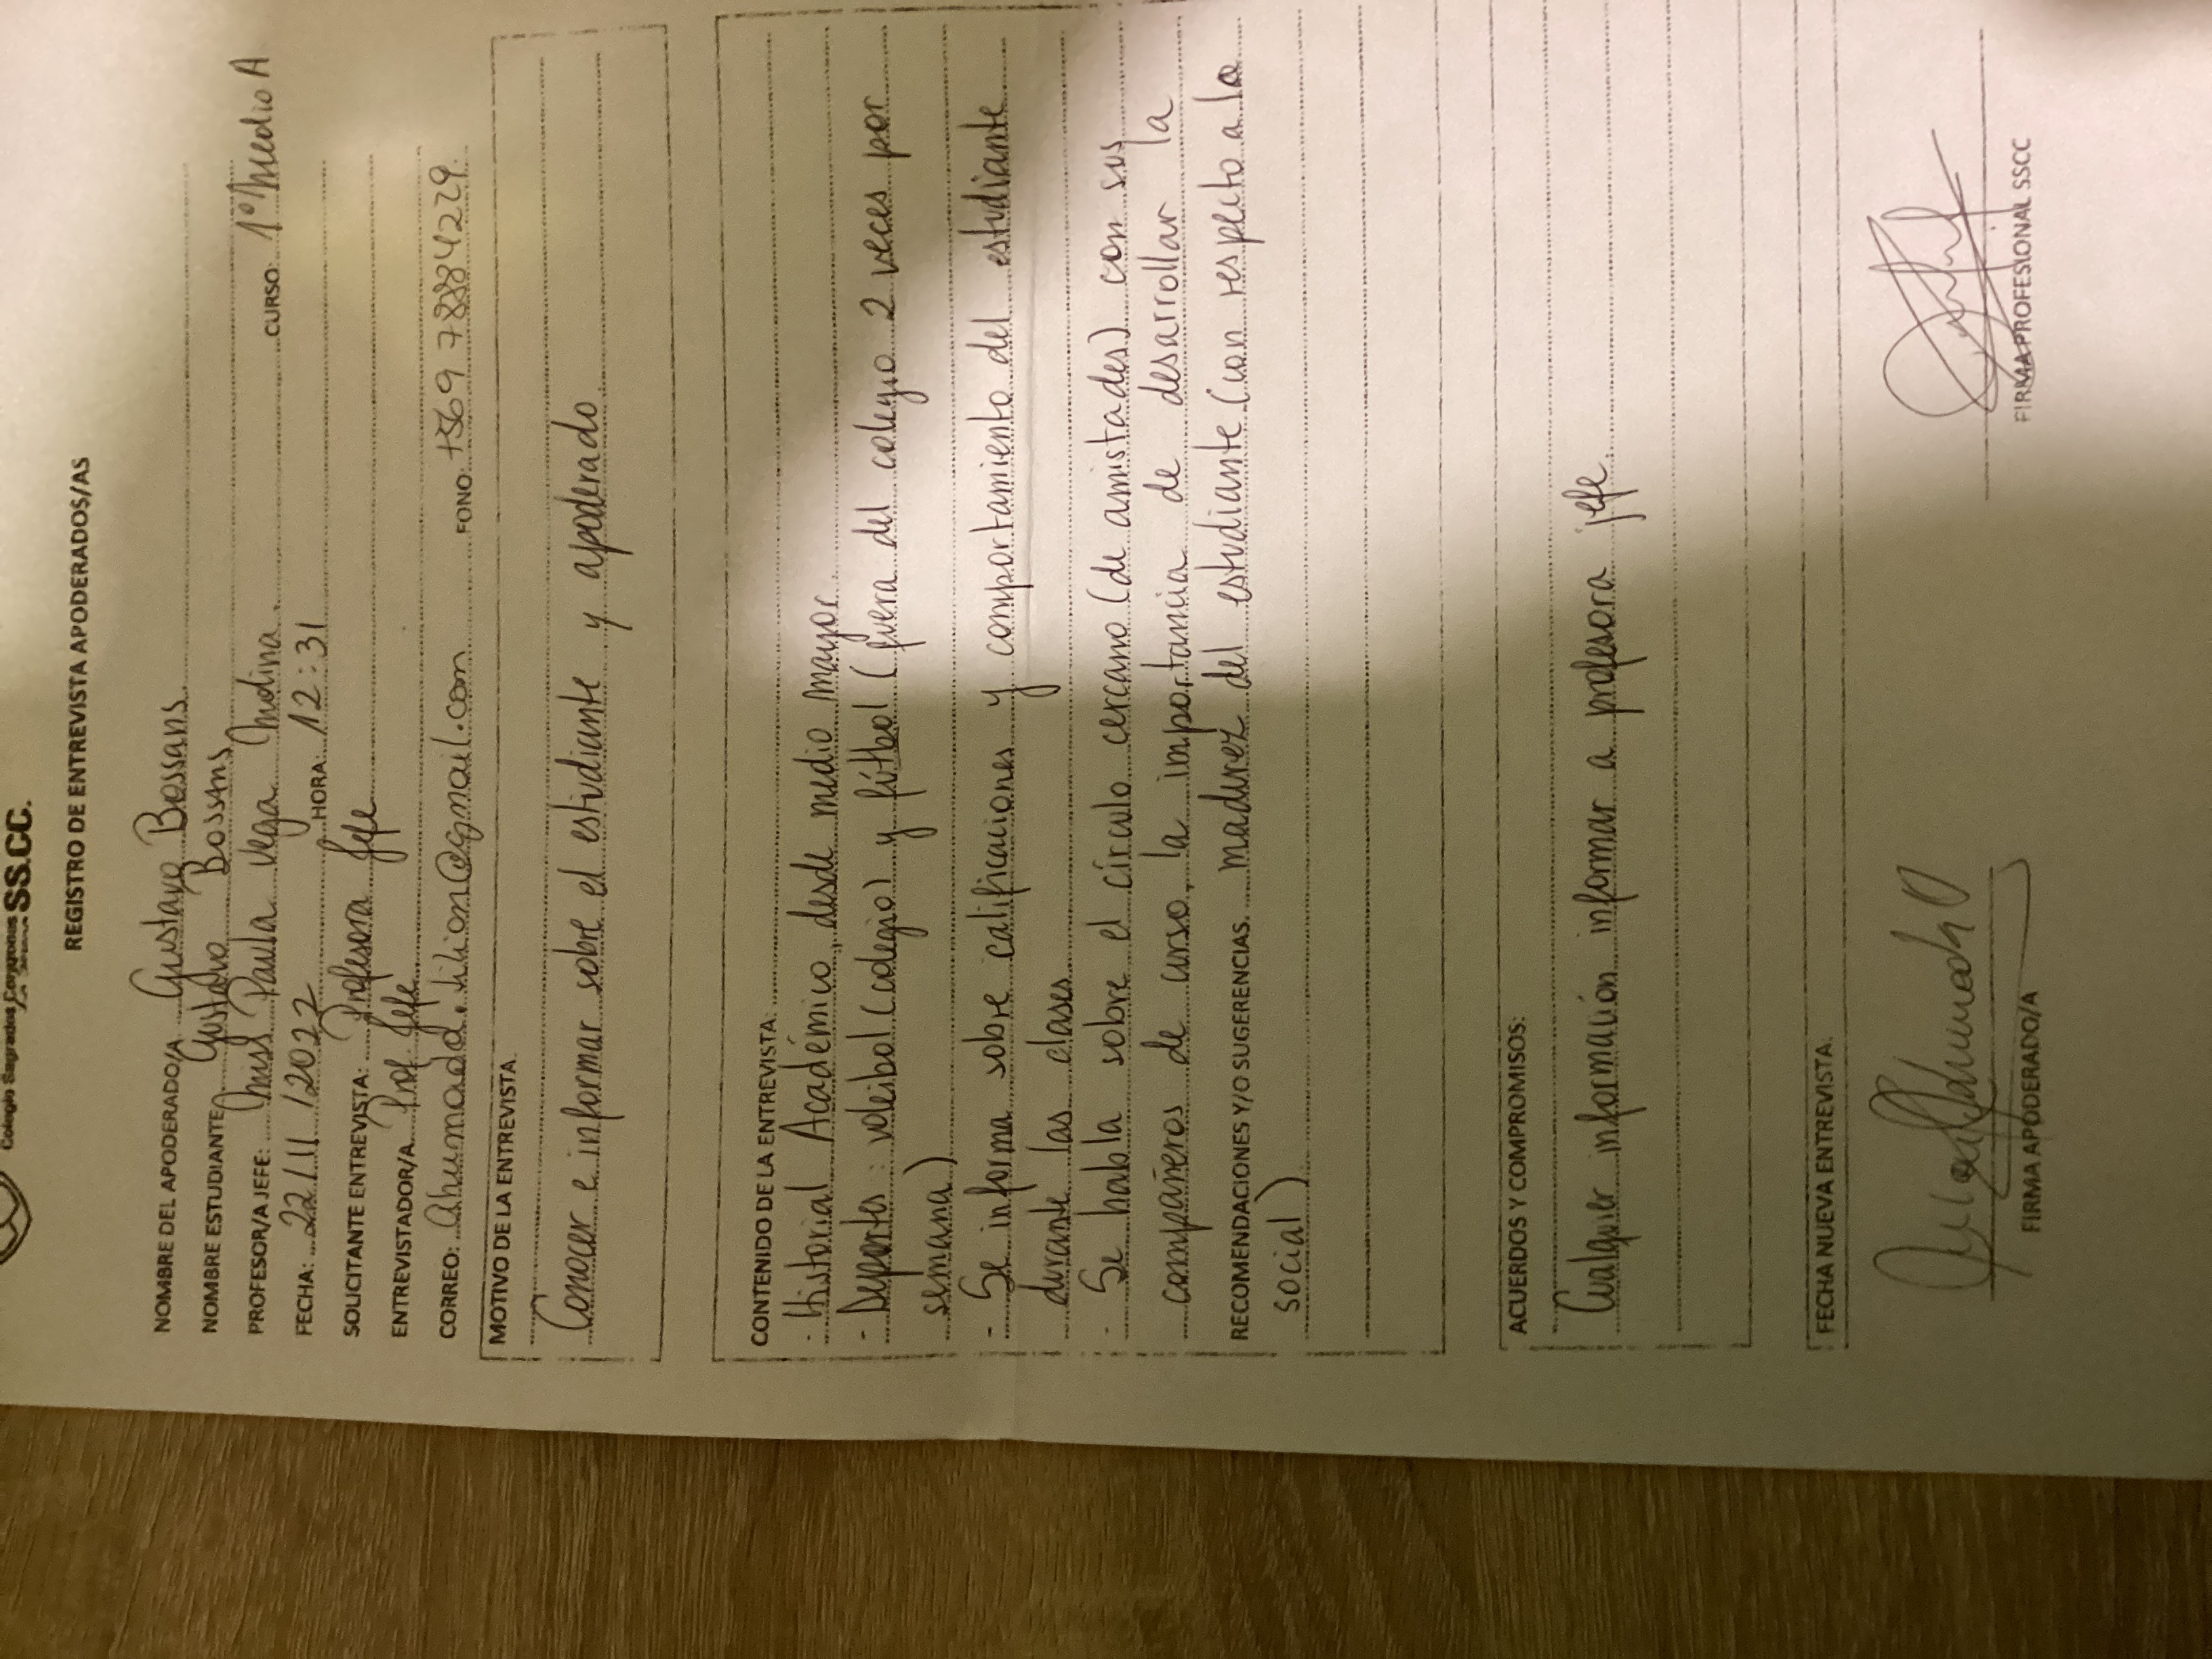 Colegio Sagrados Corazones SS.CC.
REGISTRO DE ENTREVISTA APODERADOS/AS
NOMBRE DEL APODERADO/A Gustavo Bossans
NOMBRE ESTUDIANTE Gustavo Bossans
PROFESOR/A JEFE: Miss Paula Vega Medina. CURSO: 1º Medio A
FECHA: 22/11/2022 HORA: 12:31
SOLICITANTE ENTREVISTA: Profesora Jefe
ENTREVISTADOR/A Prof. Jefe
CORREO: Ahumada.lilion@gmail.com FONO: +569 78884229
MOTIVO DE LA ENTREVISTA
Conocer e informar sobre el estudiante y apoderado
CONTENIDO DE LA ENTREVISTA:
- Historial Académico, desde medio mayor
- Deportes: voleibol (colegio) y fútbol (fuera del colegio 2 veces por
semana)
- Se informa sobre calificaciones y comportamiento del estudiante
durante las clases
- Se habla sobre el círculo cercano (de amistades) con sus
compañeros de curso, la importancia de desarrollar la
RECOMENDACIONES Y/O SUGERENCIAS. madurez del estudiante (con respecto a lo
social)
ACUERDOS Y COMPROMISOS:
Cualquier información informar a profesora jefe.
FECHA NUEVA ENTREVISTA.
FIRMA APODERADO/A FIRMA PROFESIONAL SSCC